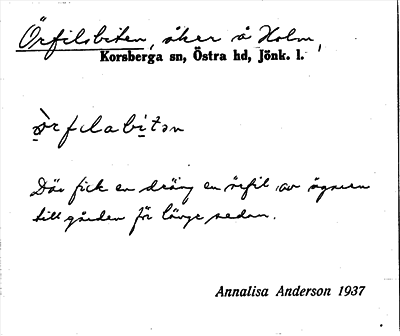 Örfilsbiten, åker å Holm,
Korsberga sn, Östra hd, Jönk. l.
òrfilabitən
Där fick en dräng en örfil av ägaren
till gården för länge sedan.
Annalisa Anderson 1937